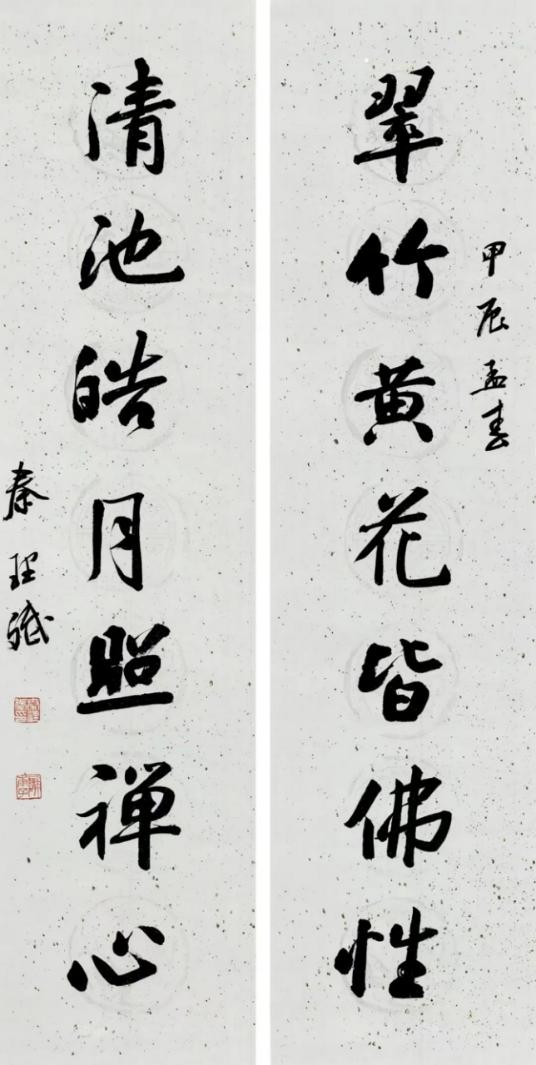 翠竹黄花皆佛性
甲辰孟春
清池皓月照禅心
秦理斌